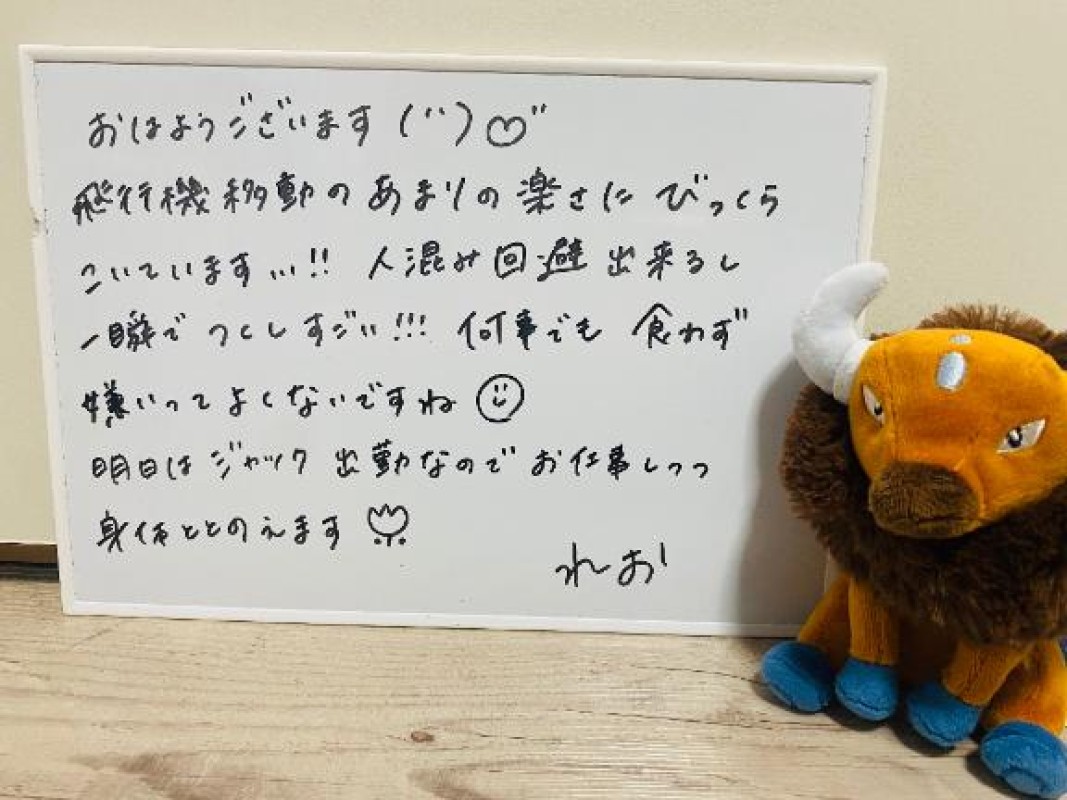 おはようございます(¨)♡"
飛行機移動のあまりの楽さにびっくら
こいています…!! 人混み回避出来るし
一瞬でつくしすごい!!! 何事でも食わず
嫌いってよくないですね☺
明日はジャック出勤なのでお仕事しつつ
身体ととのえます
れお